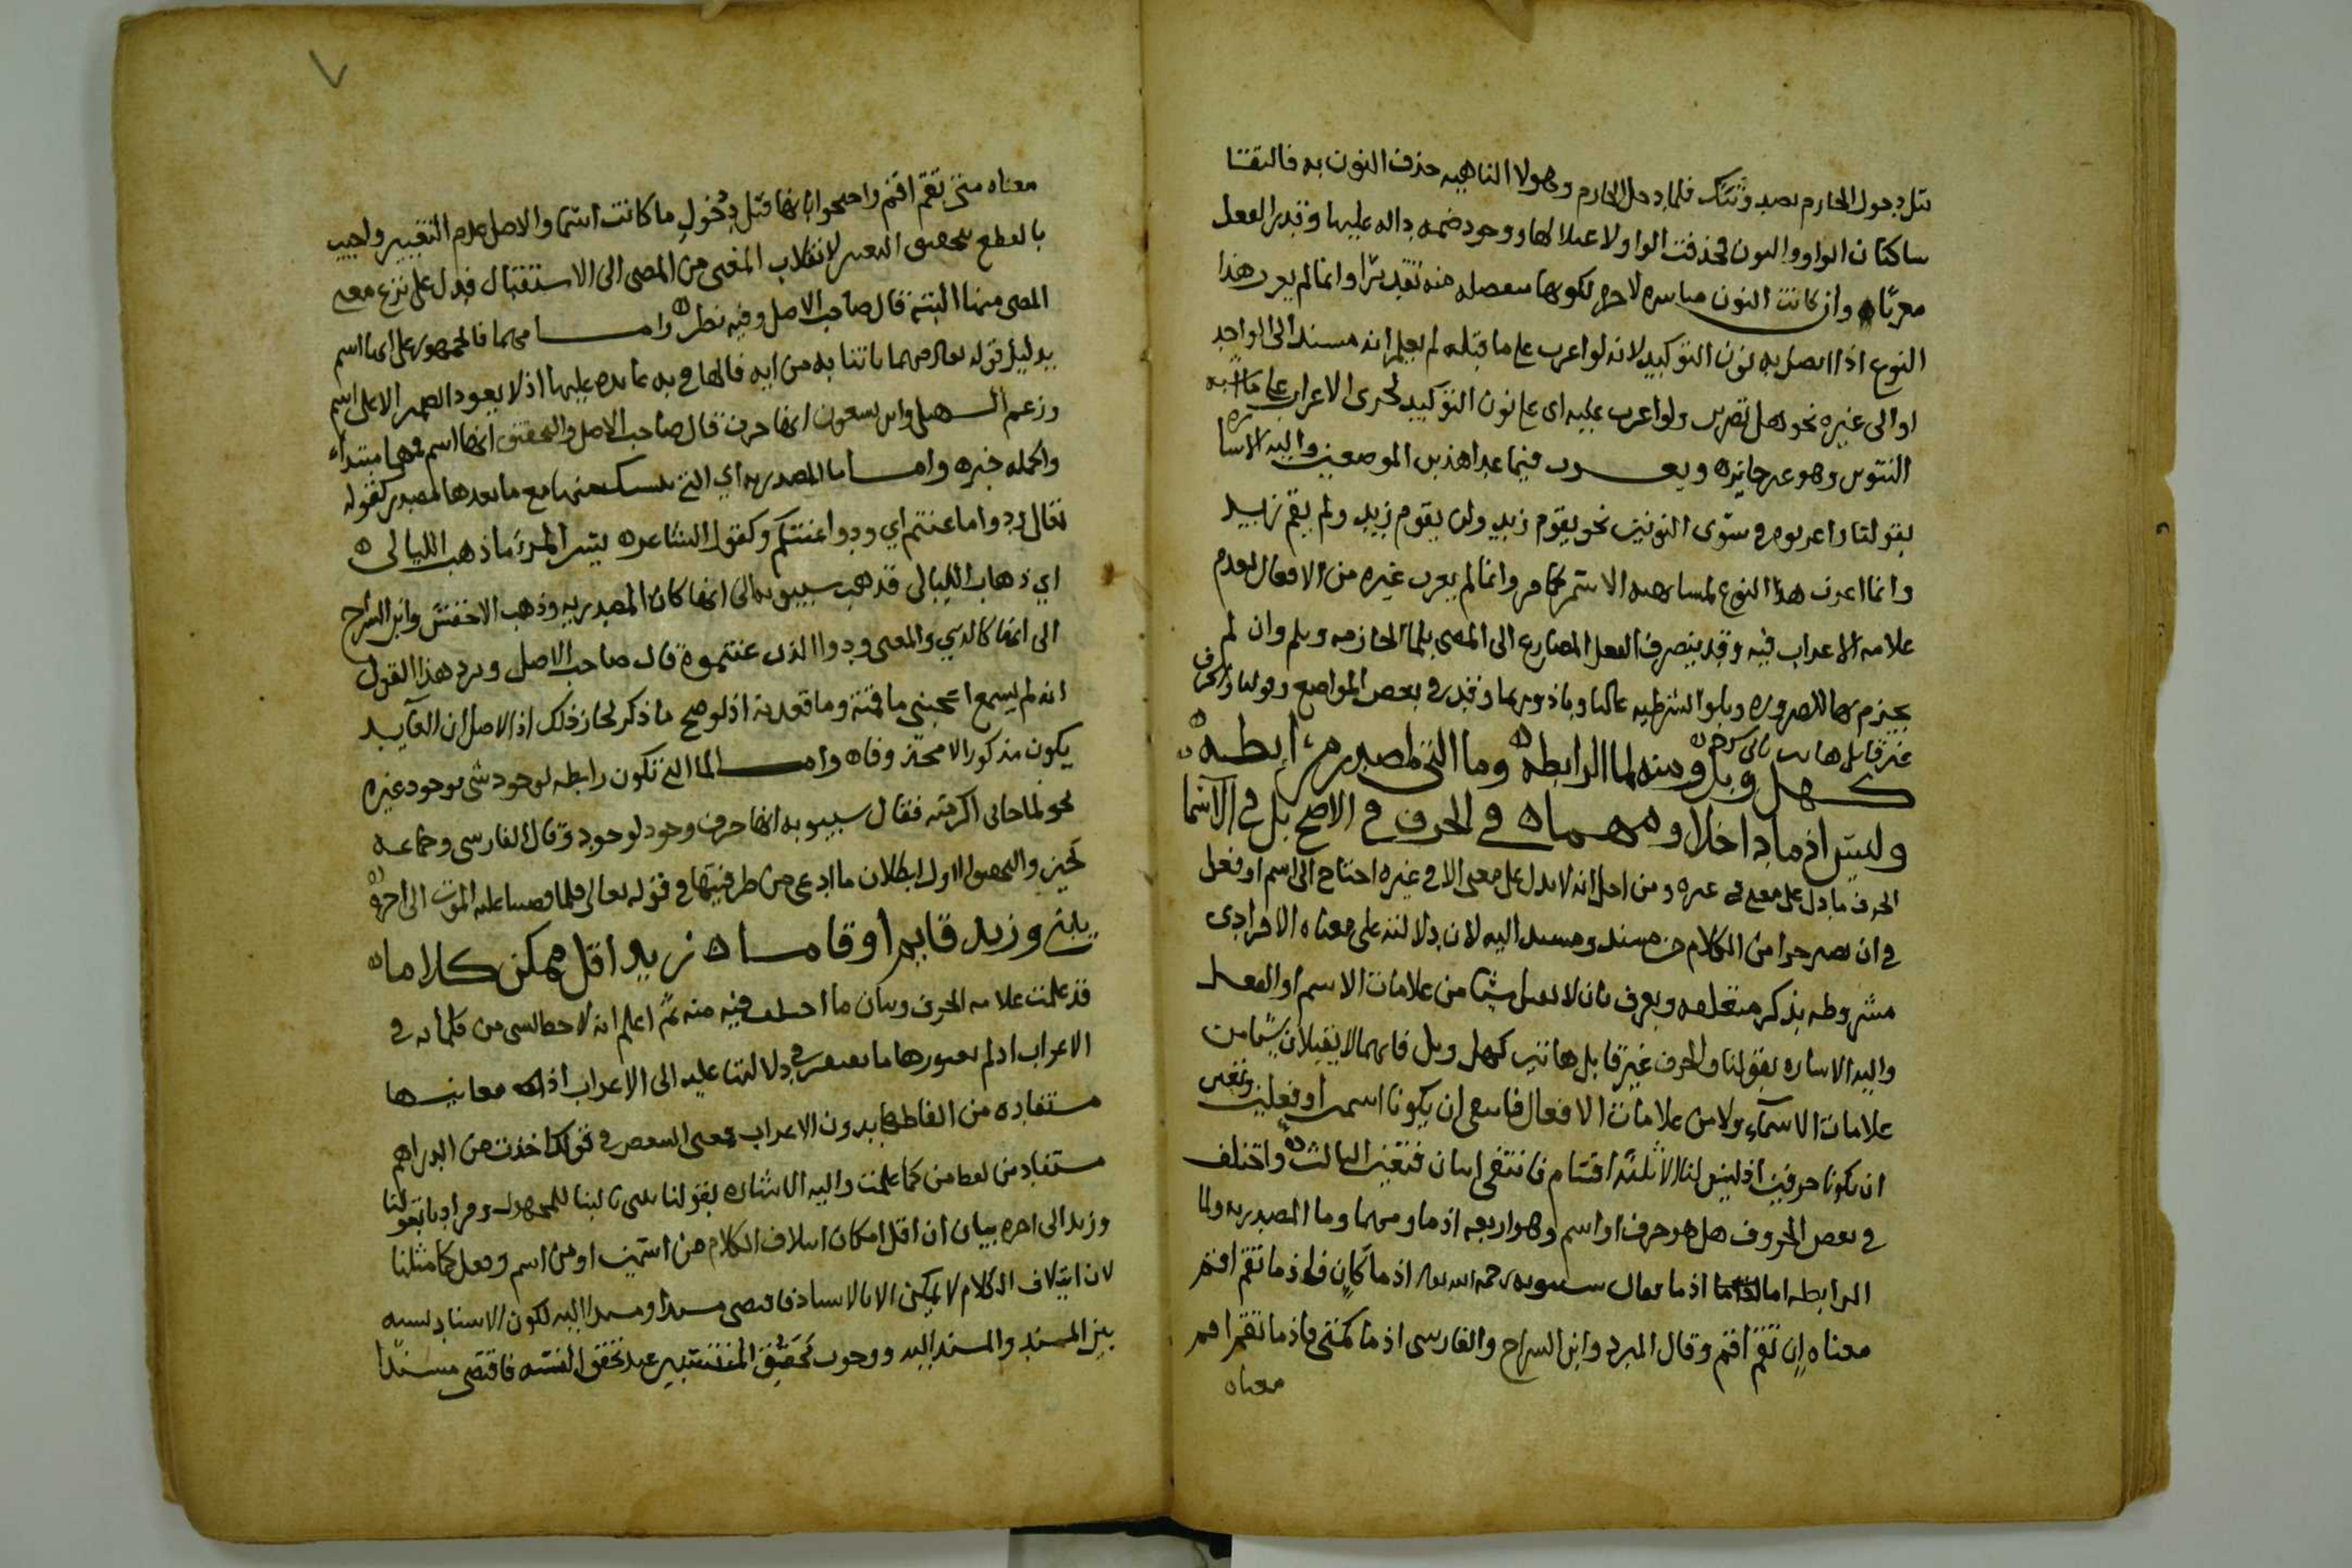 قبل دخول الجازم يصدونك فلما دخل الجازم وهو لا الناهيه حذف النون به فالتقتا
ساكنان الواو والنون فحذفت الواو لاعتلالها ووجود ضمه داله عليها وقدر الفعل
معربا وان كانت النون مباشره لاخره لكونها منفصله منه تقديرا وانما لم يعرب هذا
النوع اذا اتصل به نون التوكيد لانه لو اعرب على ما قبله لم يعلم انه مسند الى الواحد
او الى غيره نحو هل تضربن ولو اعرب عليه اى على نون التوكيد لجرى الاعراب على ما اشبه
التنوين وهو غير جايز ويعرب فيما عدا هذين الموضعين واليه الاشاره
بقولنا واعربوه سوى النونين نحو يقوم زيد ولن يقوم زيد ولم يقم زيد
وانما اعرب هذا النوع لمشابهته الاسم كما مر وانما لم يعرب غيره من الافعال لعدم
علامه الاعراب فيه وقد ينصرف الفعل المضارع الى المضى بلما الجازمه وبلم وان لم
يجزم بها للضروره وبلو الشرطيه غالبا وباذ وربما وقد في بعض المواضع وقولنا والحرف
غير قابل هاتين الى اخره
كهل وبل ومنه لما الرابطه وما التى لمصدر رابطه
وليس اذما داخلا ومهما في الحرف في الاصح بل في الاسما
الحرف ما دل على معنى في غيره ومن اجل انه لا يدل على معنى الا في غيره احتاج الى اسم او فعل
في ان يصير جزا من الكلام من مسند ومسند اليه لان دلالته على معناه الافرادى
مشروطه بذكر متعلقه ويعرف بان لا يقبل شيا من علامات الاسم او الفعل
واليه الاشاره بقولنا والحرف غير قابل هاتين كهل وبل فانهما لا يقبلان شيا من
علامات الاسماء ولا من علامات الافعال فانتفى ان يكونا اسمين او فعلين وتعين
ان يكونا حرفين اذ ليس لنا الا ثلثة اقسام فانتفى اثنان فتعين الثالث واختلف
في بعض الحروف هل هو حرف او اسم وهو اربعه اذما ومهما وما المصدريه ولما
الرابطه اما اذما فقال سيبويه رحمه الله تعالى اذما كان فاذا اذما تقم اقم
معناه ان تقم اقم وقال المبرد وابن السراج والفارسى اذما كمتى فاذما تقم اقم
معناه
معناه متى تقم اقم واحتجوا بانها قبل دخول ما كانت اسما والاصل عدم التغيير واجيب
بالقطع بتحقيق التغيير لانقلاب المعنى من المضى الى الاستقبال فدل على نزع معنى
المضى منها البتة قال صاحب الاصل وفيه نظر واما مهما فالجمهور على انها اسم
بدليل قوله تعالى مهما تاتنا به من ايه فالها في به عايده عليها اذ لا يعود الضمير الا على اسم
وزعم السهيلى وابن يسعون انها حرف قال صاحب الاصل والتحقيق انها اسم فمهما مبتداء
والجمله خبره واما ما المصدريه اي التي ينسبك منها مع ما بعدها المصدر كقوله
تعالى ودوا ما عنتم اي ودوا عنتكم وكقول الشاعر يسر المرء ما ذهب الليالى
اي ذهاب الليالى فذهب سيبويه الى انها كان المصدريه وذهب الاخفش وابن السراج
الى انها كالذي والمعنى ودوا الذى عنتموه قال صاحب الاصل ويرد هذا القول
انه لم يسمع اعجبنى ما قمته وما قعدته اذ لو صح ما ذكر لجاز ذلك اذ الاصل ان العايد
يكون مذكورا لا محذوفا واما لما التي تكون رابطه لوجود شى بوجود غيره
نحو لما جانى اكرمته فقال سيبويه انها حرف وجود لوجود وقال الفارسى وجماعه
كحين والتحقيق الاول لبطلان ما ادعى من ظرفيتها في قوله تعالى فلما قضينا عليه الموت الى اخره
يلبنى وزيد قايم او قاما زيد اقل ممكن كلاما
قد علمت علامه الحرف وبيان ما اختلف فيه منه ثم اعلم انه لا حظ لشى من كلماته في
الاعراب اذ لم يعتورها ما تفتقر في دلالتها عليه الى الاعراب اذ كل معانيها
مستفاده من الفاظها بدون الاعراب فمعنى التبعيض في قولك اخذت من الدراهم
مستفاد من لفظ من كما علمت واليه الاشاره بقولنا يلبنى بالبنا للمجهول ومرادنا بقولنا
وزيد الى اخره بيان ان اقل امكان ايتلاف الكلام من اسمين او من اسم وفعل كما مثلنا
لان ايتلاف الكلام لا يمكن الا بالاسناد فاقتضى مسندا ومسندا اليه لكون الاسناد نسبه
بين المسند والمسند اليه ووجوب تحقيق المنتسبين عند تحقق النسبه فاقتضى مسندا